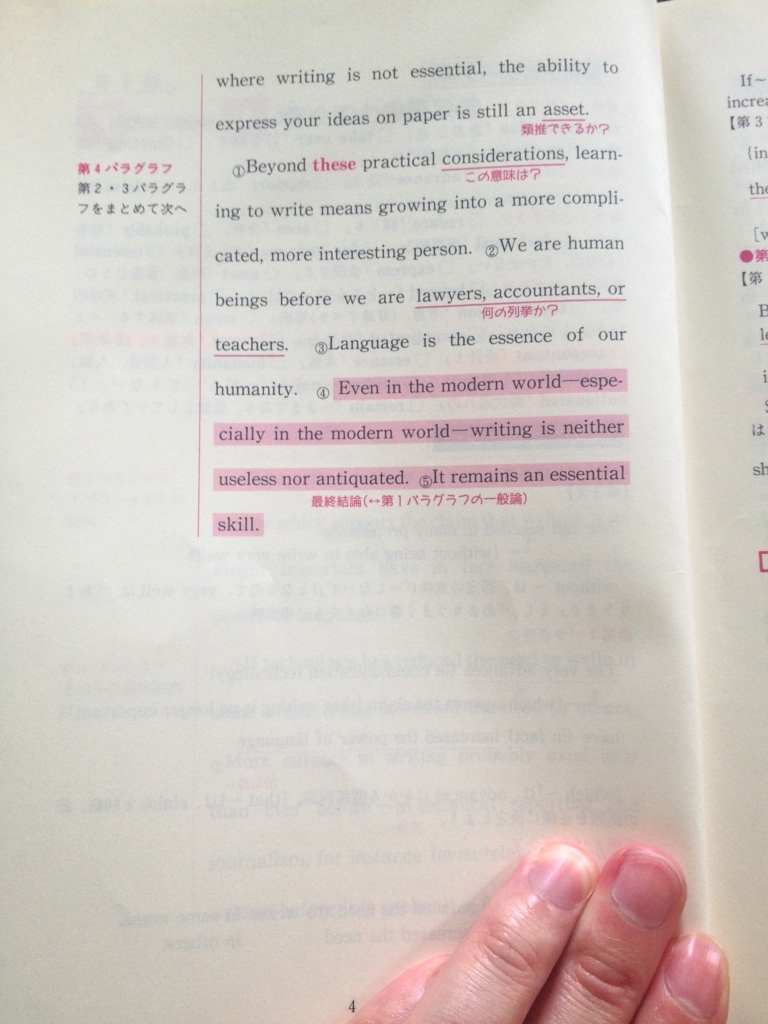 where writing is not essential, the ability to
express your ideas on paper is still an asset.
類推できるか?
第4パラグラフ
第2・3パラグラ
フをまとめて次へ
①Beyond these practical considerations, learn-
この意味は?
ing to write means growing into a more compli-
cated, more interesting person. ②We are human
beings before we are lawyers, accountants, or
何の列挙か?
teachers. ③Language is the essence of our
humanity. ④Even in the modern world—espe-
cially in the modern world—writing is neither
useless nor antiquated. ⑤It remains an essential
最終結論(↔第1パラグラフの一般論)
skill.
4
If~
increa
【第3
(in
the
[w
●第
【第
は
sh